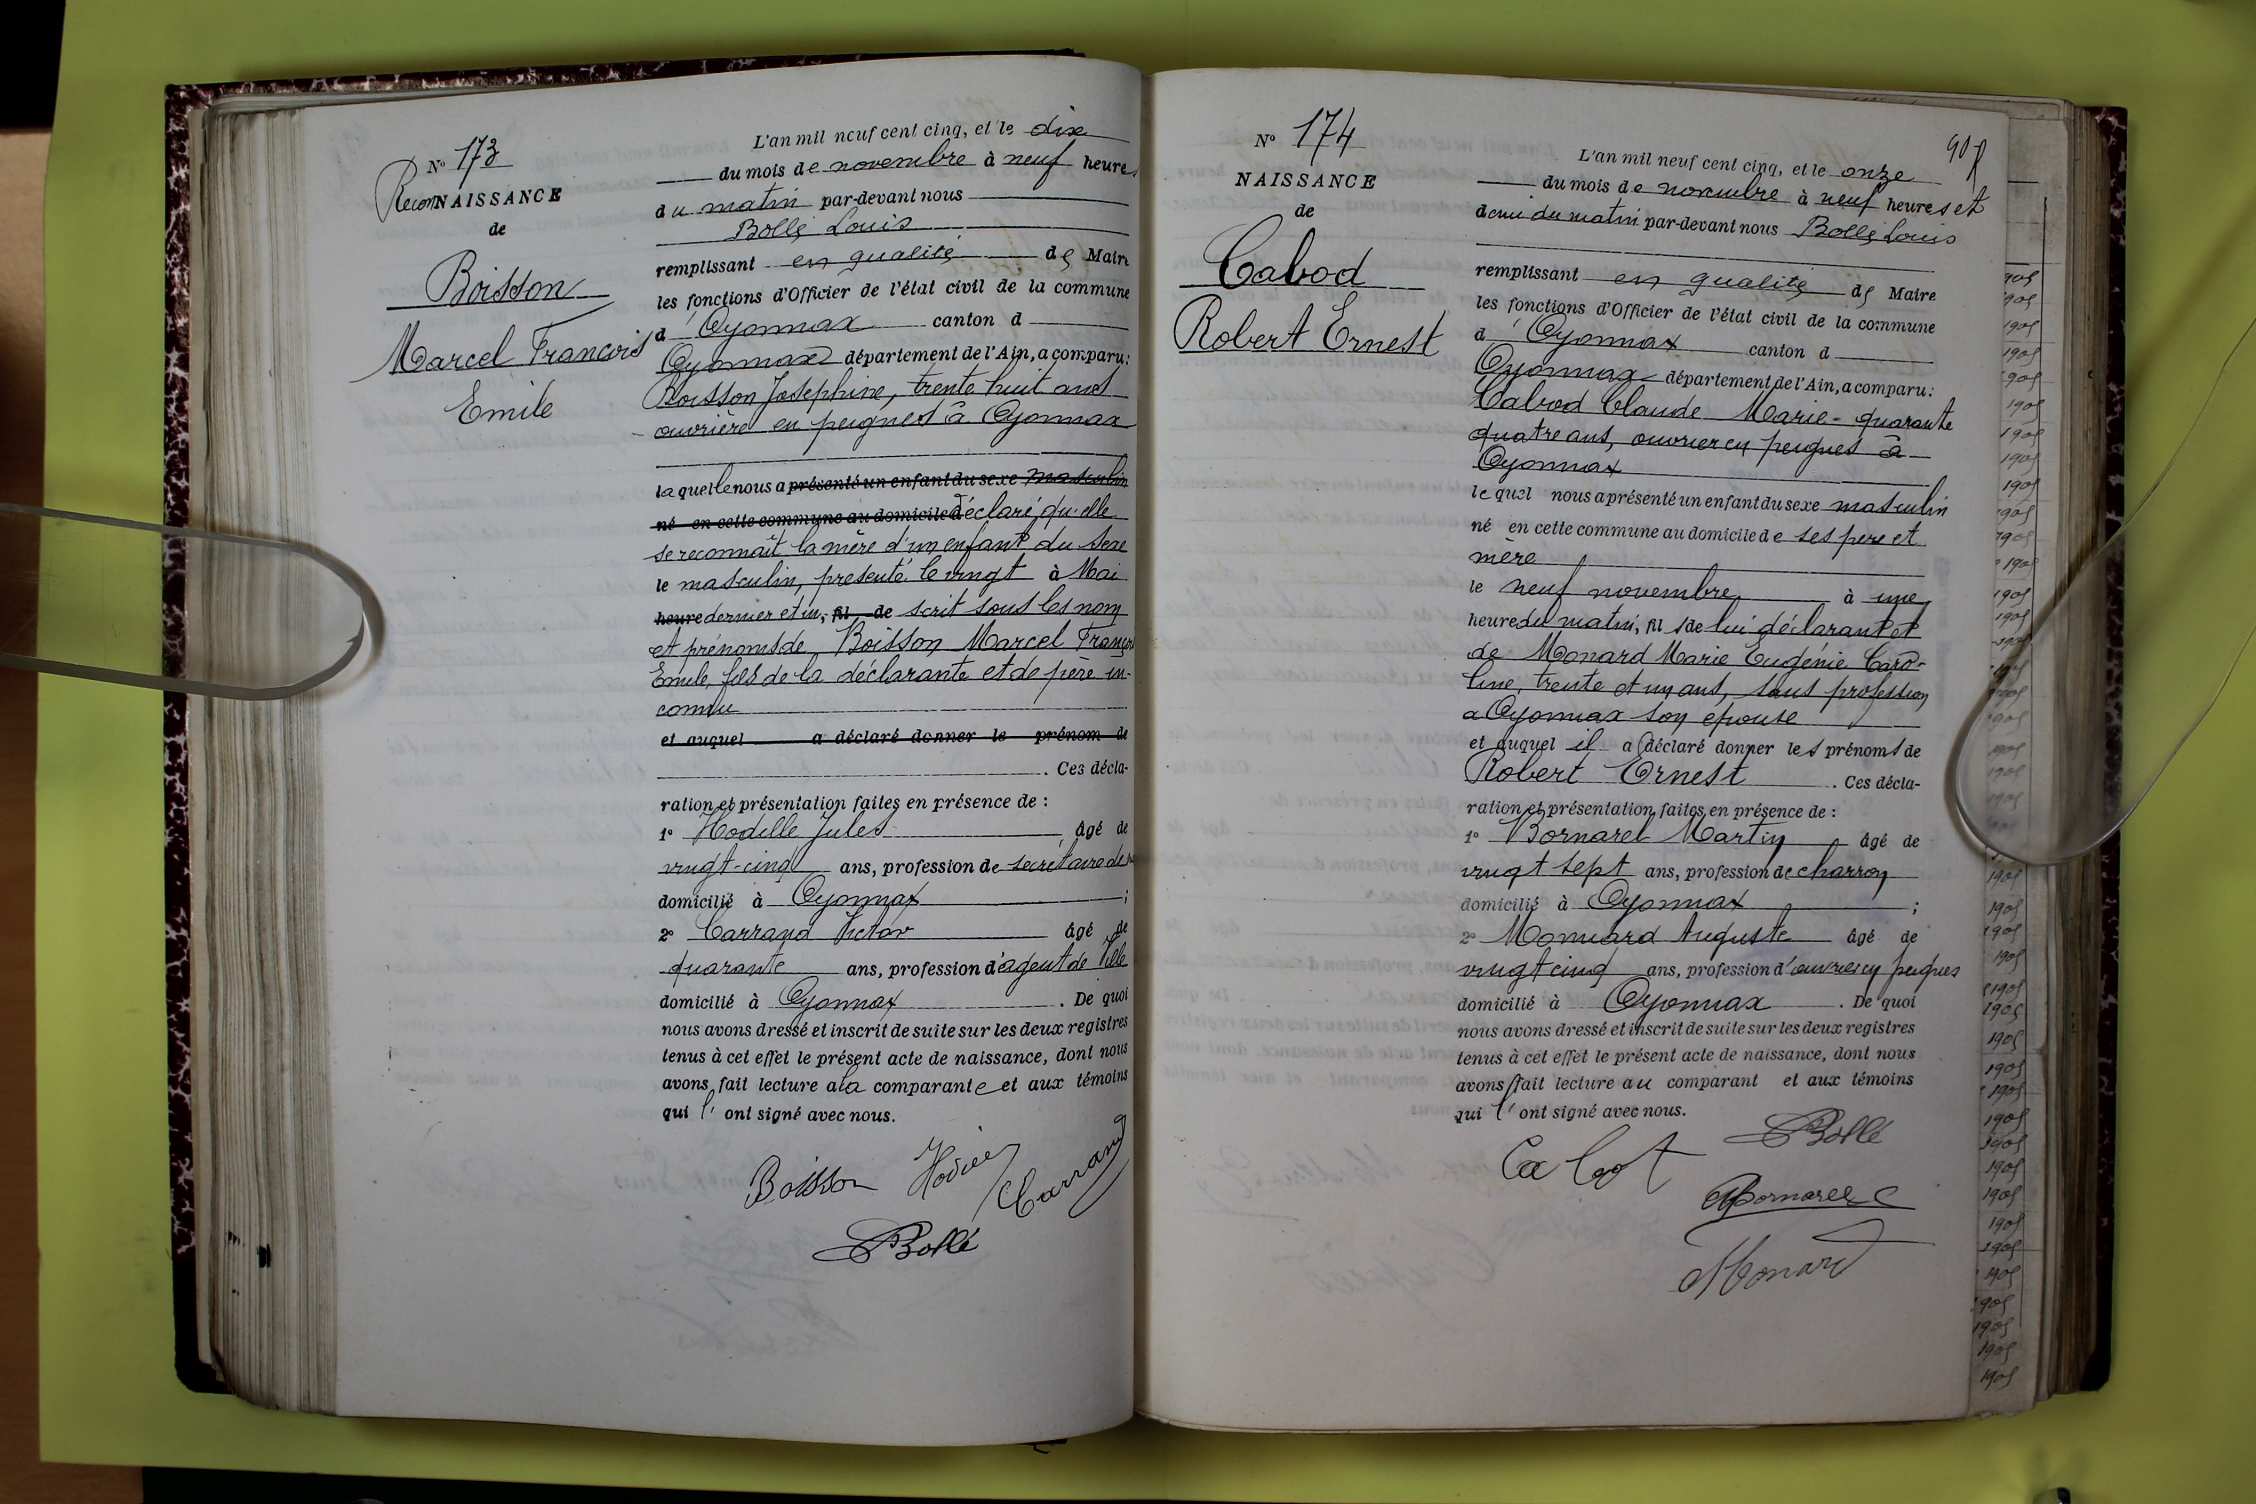 N° 173
ReconNAISSANCE
de
Boisson
Marcel François
Emile
L'an mil neuf cent cinq, et le dix
du mois de novembre à neuf heures
du matin par-devant nous
Bollé Louis
remplissant en qualité de Maire
les fonctions d'Officier de l'état civil de la commune
d'Oyonnax canton d
Oyonnax département de l'Ain, a comparu:
Boisson Josephine, trente huit ans
ouvrière en peignes à Oyonnax
laquelle nous a présenté un enfant du sexe masculin
né en cette commune au domicile d déclaré qu'elle
se reconnaît la mère d'un enfant du sexe
le masculin, présenté le vingt à Mai
heure dernier et in, fil de scrit sous les nom
et prénoms de Boisson Marcel François
Emile, fils de la déclarante et de père in-
connu
et auquel a déclaré donner le prénom de
. Ces décla-
ration et présentation faites en présence de :
1° Hodille Jules âgé de
vingt-cinq ans, profession de secrétaire de
domicilié à Oyonnax ;
2° Carrand Victor âgé de
quarante ans, profession d'agent de Ville
domicilié à Oyonnax . De quoi
nous avons dressé et inscrit de suite sur les deux registres
tenus à cet effet le présent acte de naissance, dont nous
avons fait lecture a la comparante et aux témoins
qui l'ont signé avec nous.
Boisson Carrand
Bollé
N° 174
NAISSANCE
de
Cabod
Robert Ernest
L'an mil neuf cent cinq, et le onze
du mois de novembre à neuf heures et
demi du matin par-devant nous Bollé Louis
remplissant en qualité de Maire
les fonctions d'Officier de l'état civil de la commune
d'Oyonnax canton d
Oyonnax département de l'Ain, a comparu:
Cabod Claude Marie - quarante
quatre ans, ouvrier en peignes à
Oyonnax
lequel nous a présenté un enfant du sexe masculin
né en cette commune au domicile de ses pere et
mère
le neuf novembre à une
heure du matin, fils de lui déclarant et
de Monard Marie Eugénie Caro-
line, trente et un ans, sans profession
a Oyonnax son epouse
et auquel il a déclaré donner les prénoms de
Robert Ernest . Ces décla-
ration et présentation faites en présence de :
1° Bornarel Martin âgé de
vingt sept ans, profession de charron
domicilié à Oyonnax ;
2° Monnard Auguste âgé de
vingt cinq ans, profession d'ouvrier en peignes
domicilié à Oyonnax . De quoi
nous avons dressé et inscrit de suite sur les deux registres
tenus à cet effet le présent acte de naissance, dont nous
avons fait lecture au comparant et aux témoins
qui l'ont signé avec nous.
Bollé
Cabot
Bornarel
Monard